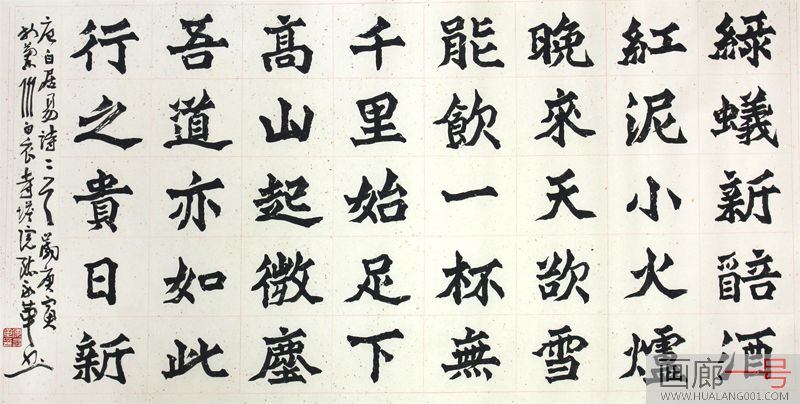 綠蟻新醅酒
紅泥小火爐
晚來天欲雪
能飲一杯無
千里始足下
髙山起微塵
吾道亦如此
行之貴日新
唐白居易詩二首歲庚寅
於蘭州白衣寺塔院
画廊一号
WWW.HUALANG001.COM